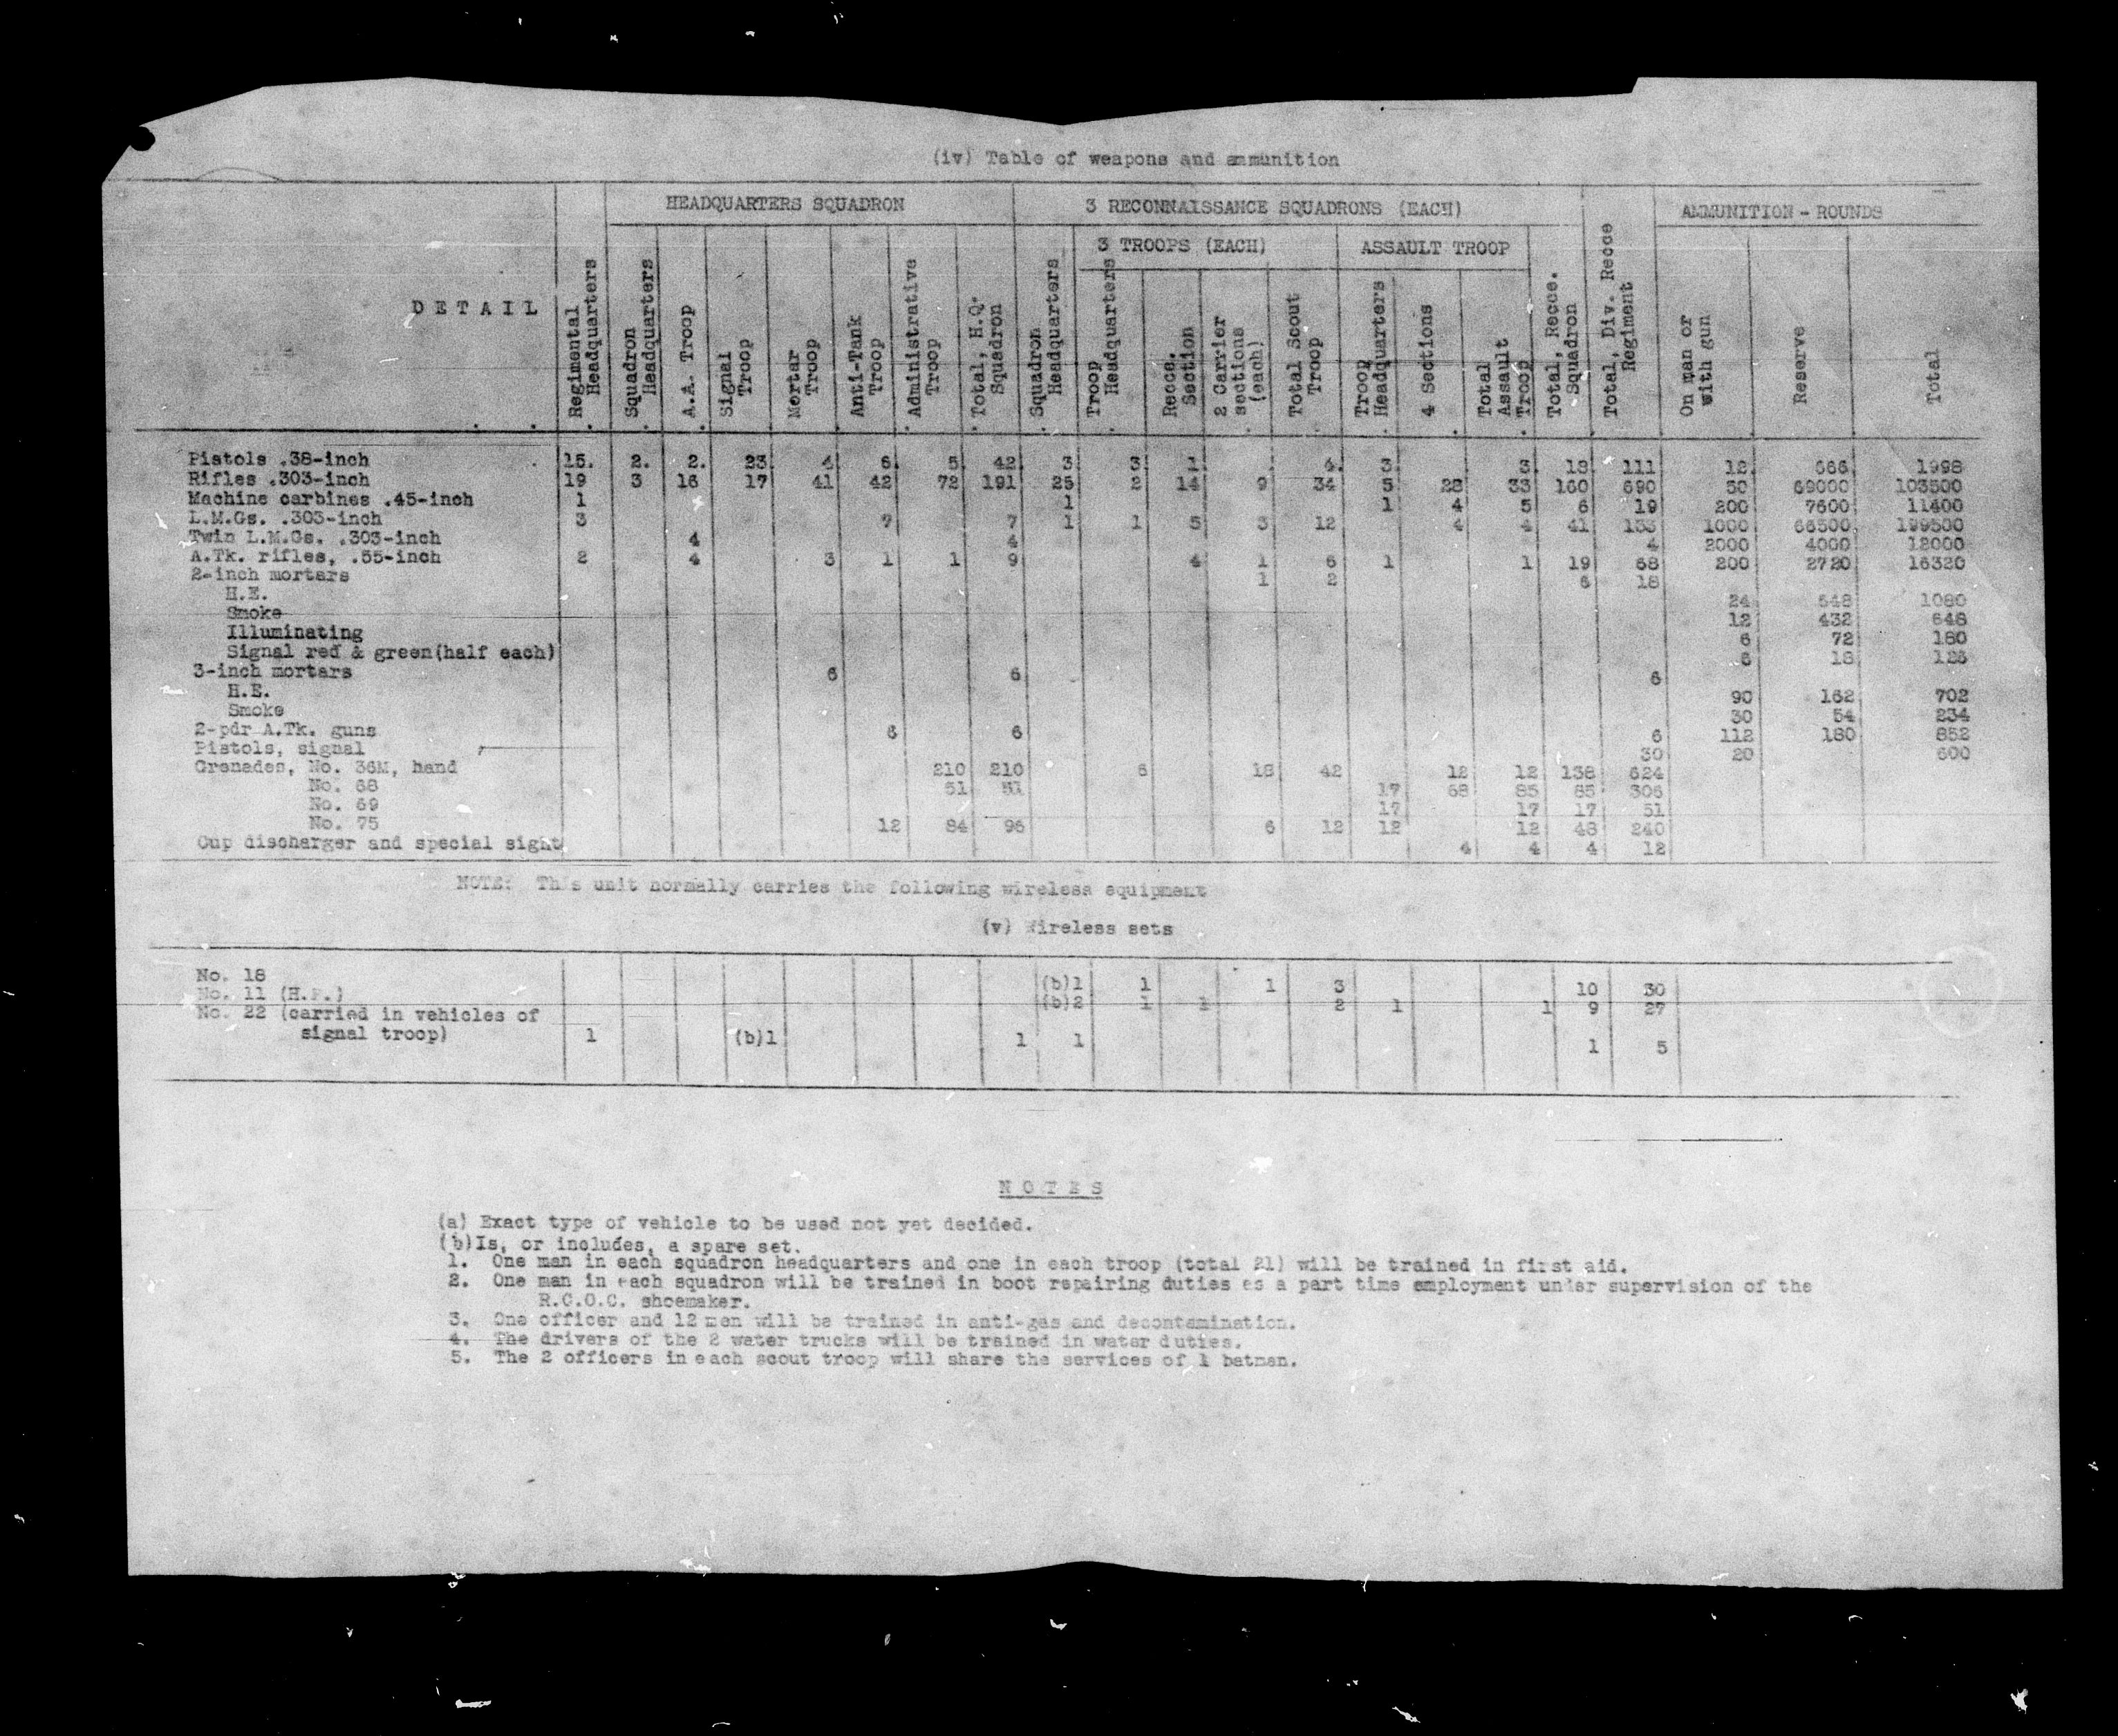 (iv) Table of weapons and ammunition
HEADQUARTERS SQUADRON 3 RECONNAISSANCE SQUADRONS (EACH) AMMUNITION - ROUNDS
3 TROOPS (EACH) ASSAULT TROOP
DETAIL Regimental Headquarters Squadron Headquarters A.A. Troop Signal Troop Mortar Troop Anti-Tank Troop Administrative Troop Total, H.Q. Squadron Squadron Headquarters Troop Headquarters Recce. Section 2 Carrier sections (each) Total Scout Troop Troop Headquarters 4 Sections Total Assault Troop Total, Recce. Squadron Total, Div. Recce Regiment On man or with gun Reserve Total
Pistols .38-inch 15. 2. 2. 23 4 6. 5 42 3 3 1 4. 3 3. 18 111 12. 666. 1998
Rifles .303-inch 19 3 16 17 41 42 72 191 25 2 14 9 34 5 28 33 160 690 50 69000 103500
Machine carbines .45-inch 1 1 1 4 5 6 19 200 7600 11400
L.M.Gs. .303-inch 3 7 7 1 1 5 3 12 4 4 41 133 1000 66500 199500
Twin L.M.Gs. .303-inch 4 4 4 2000 4000 12000
A.Tk. rifles, .55-inch 2 4 3 1 1 9 4 1 6 1 1 19 68 200 2720 16320
2-inch mortars 1 2 6 18
H.E. 24 648 1080
Smoke 12 432 648
Illuminating 6 72 180
Signal red & green(half each) 6 18 126
3-inch mortars 6 6 6
H.E. 90 162 702
Smoke 30 54 234
2-pdr A.Tk. guns 6 6 6 112 180 852
Pistols, signal 30 20 600
Grenades, No. 36M, hand 210 210 6 18 42 12 12 138 624
No. 68 51 51 17 68 85 85 306
No. 69 17 17 17 51
No. 75 12 84 96 6 12 12 12 48 240
Cup discharger and special sight 4 4 4 12
NOTE: This unit normally carries the following wireless equipment
(v) Wireless sets
No. 18 (b)1 1 1 3 10 30
No. 11 (H.P.) (b)2 1 1 2 1 1 9 27
No. 22 (carried in vehicles of
signal troop) 1 (b)1 1 1 1 5
NOTES
(a) Exact type of vehicle to be used not yet decided.
(b)Is, or includes, a spare set.
1. One man in each squadron headquarters and one in each troop (total 21) will be trained in first aid.
2. One man in each squadron will be trained in boot repairing duties as a part time employment under supervision of the
R.C.O.C. shoemaker.
3. One officer and 12 men will be trained in anti-gas and decontamination.
4. The drivers of the 2 water trucks will be trained in water duties.
5. The 2 officers in each scout troop will share the services of 1 batman.